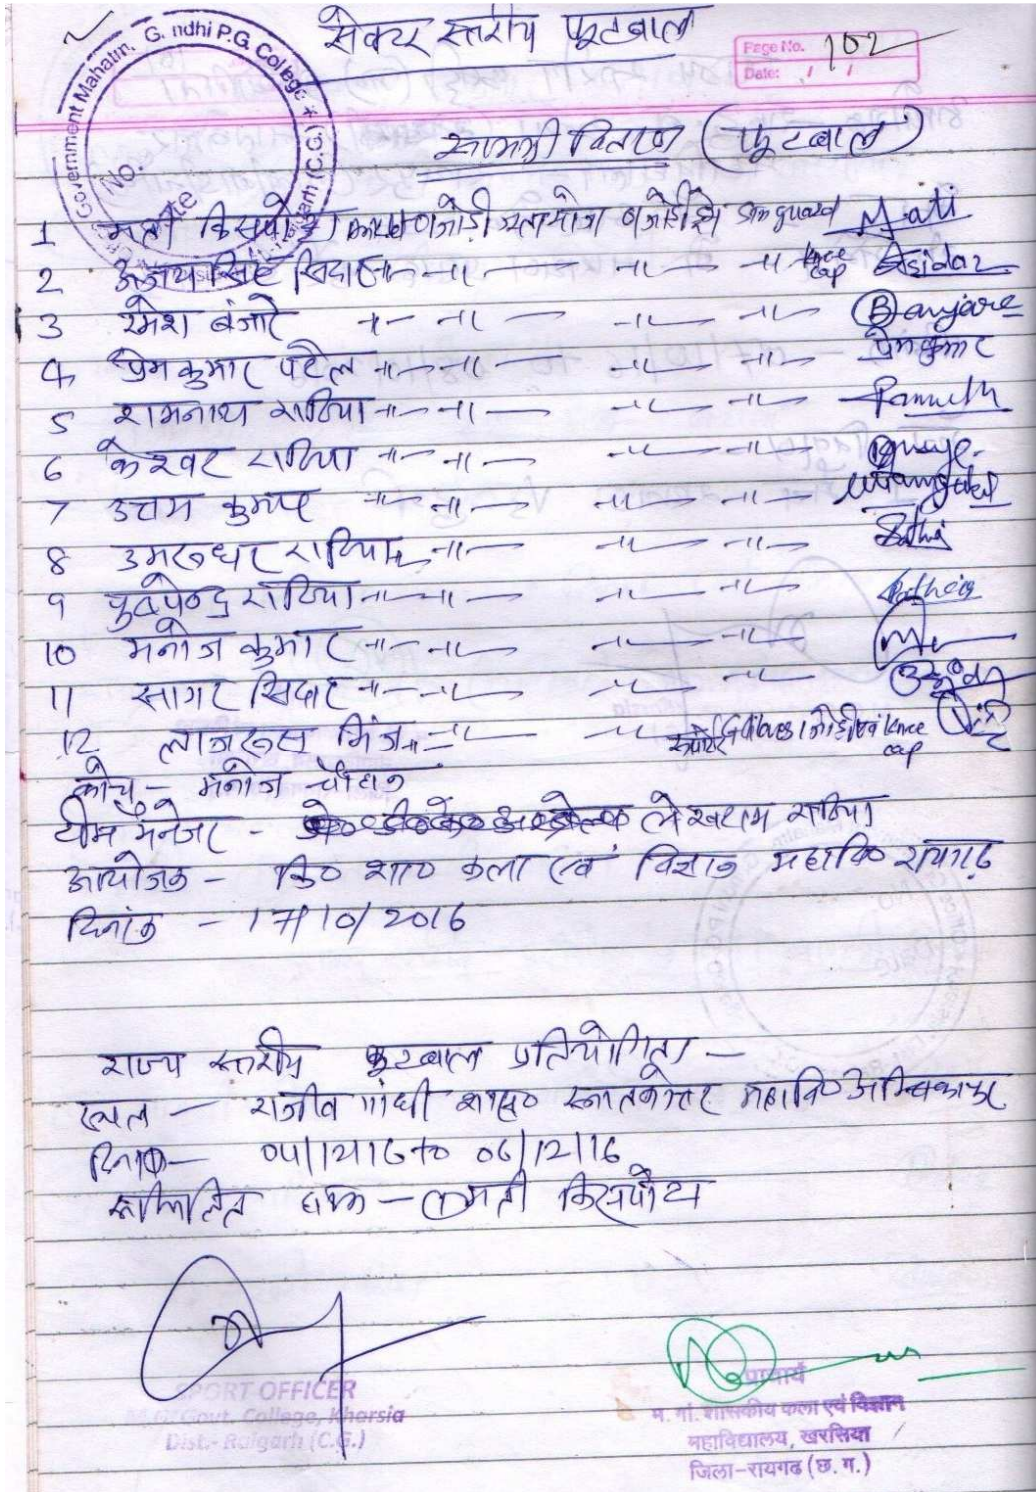 सेक्टर स्तरीय फूटबाल
Page No. 102
Date: / /
Government Mahatm. G. ndhi P.G. College * (C.G.)
No.
सामग्री वितरण (फूटबाल)
1 मती किसपोट्टा जोड़ी मोजा जोड़ी Sin guard Mati
2 अजय सिंह सिदार -〃- -〃- -〃- -〃- knee cap Sidar
3 रमेश बंजारे -〃- -〃- -〃- -〃- Banjare
4 प्रेमकुमार पटेल -〃- -〃- -〃- -〃- प्रेमकुमार
5 रामनाथ राठिया -〃- -〃- -〃- -〃-
6 केश्वर राठिया -〃- -〃- -〃- -〃-
7 उत्तम कुमार -〃- -〃- -〃- -〃-
8 राठिया -〃- -〃- -〃-
9 राठिया -〃- -〃- -〃- -〃- Rathia
10 मनोज कुमार -〃- -〃- -〃- -〃-
11 सागर सिदार -〃- -〃- -〃- -〃-
12 लाजरूस मिंज -〃- -〃- Gloves 1 जोड़ी knee cap
कोच - मनोज चौहान
टीम मैनेजर - लेखराम राठिया
आयोजक - कि० शा० कला एवं विज्ञान महावि० रायगढ़
दिनांक - 17/10/2016
राज्य स्तरीय फुटबाल प्रतियोगिता -
स्थल - राजीव गांधी शास० स्नातकोत्तर महावि० अम्बिकापुर
दिनांक - 04/12/16 to 06/12/16
सम्मिलित छात्र - मती किसपोट्टा
SPORT OFFICER
M.G. Govt. College, Kharsia
Dist.- Raigarh (C.G.)
प्राचार्य
म. गां. शासकीय कला एवं विज्ञान
महाविद्यालय, खरसिया
जिला-रायगढ (छ. ग.)